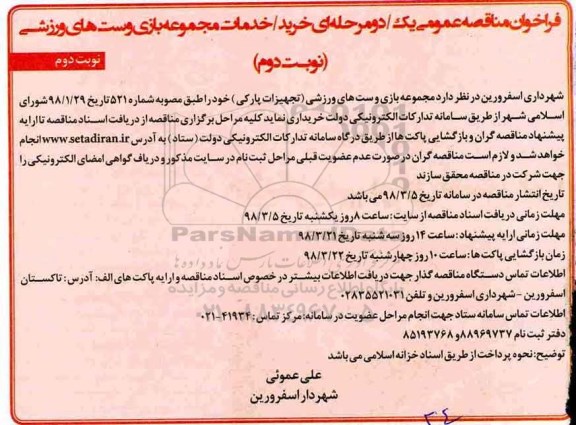 فراخوان مناقصه عمومی یک / دو مرحله‌ای خرید / خدمات مجموعه بازی و ست های ورزشی
(نوبت دوم)
نوبت دوم
شهرداری اسفرورین در نظر دارد مجموعه بازی و ست های ورزشی (تجهیزات پارکی) خود را طبق مصوبه شماره ۵۲۱ تاریخ ۹۸/۱/۲۹ شورای
اسلامی شهر از طریق سامانه تدارکات الکترونیکی دولت خریداری نماید کلیه مراحل برگزاری مناقصه از دریافت اسناد مناقصه تا ارایه
پیشنهاد مناقصه گران و بازگشایی پاکت ها از طریق درگاه سامانه تدارکات الکترونیکی دولت (ستاد) به آدرس www.setadiran.ir انجام
خواهد شد و لازم است مناقصه گران در صورت عدم عضویت قبلی مراحل ثبت نام در سایت مذکور و دریاف گواهی امضای الکترونیکی را
جهت شرکت در مناقصه محقق سازند
تاریخ انتشار مناقصه در سامانه تاریخ ۹۸/۳/۵ می باشد
مهلت زمانی دریافت اسناد مناقصه از سایت: ساعت ۸ روز یکشنبه تاریخ ۹۸/۳/۵
مهلت زمانی ارایه پیشنهاد: ساعت ۱۴ روز سه شنبه تاریخ ۹۸/۳/۲۱
زمان بازگشایی پاکت ها: ساعت ۱۰ روز چهارشنبه تاریخ ۹۸/۳/۲۲
اطلاعات تماس دستگاه مناقصه گذار جهت دریافت اطلاعات بیشتر در خصوص اسناد مناقصه و ارایه پاکت های الف: آدرس: تاکستان
اسفرورین - شهرداری اسفرورین و تلفن ۰۲۸۳۵۵۲۱۰۳۱
اطلاعات تماس سامانه ستاد جهت انجام مراحل عضویت در سامانه: مرکز تماس: ۴۱۹۳۴-۰۲۱
دفتر ثبت نام ۸۸۹۶۹۷۳۷ و ۸۵۱۹۳۷۶۸
توضیح: نحوه پرداخت از طریق اسناد خزانه اسلامی می باشد
علی عموئی
شهردار اسفرورین
ParsNamadData